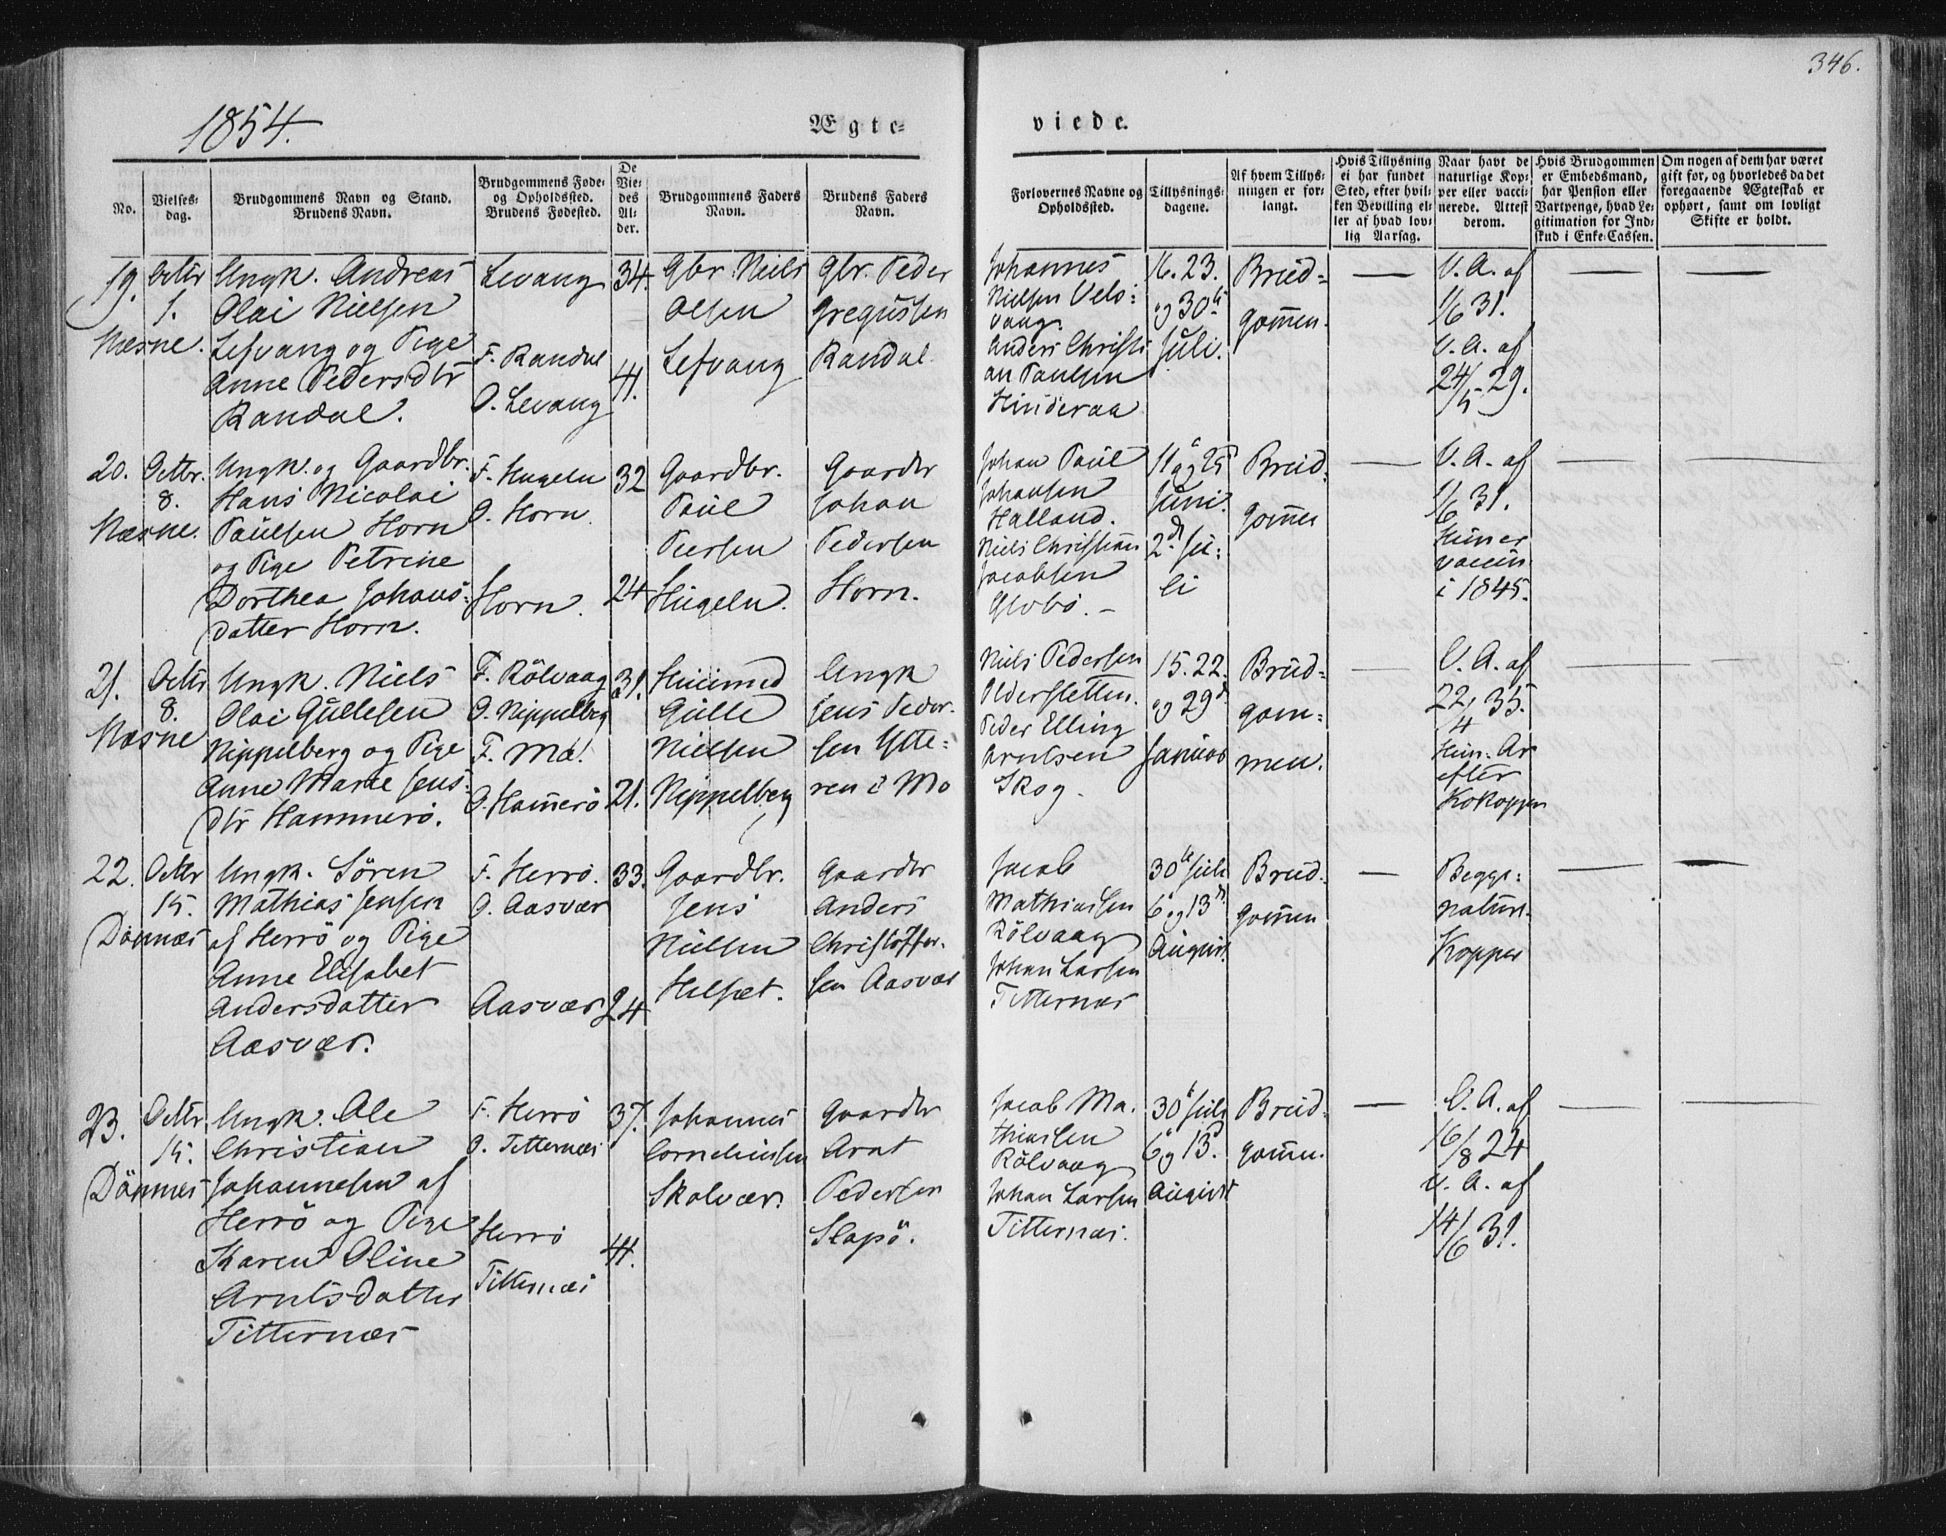 346.
1854.
Ægte-
viede.
No.
Vielses-
dag.
Brudgommens Navn og Stand.
Brudens Navn.
Brudgommens Føde-
og Opholdssted.
Brudens Fødested.
De
Vie-
des
Al-
der.
Brudgommens Faders
Navn.
Brudens Faders
Navn.
Forlovernes Navne og
Opholdssted.
Tillysnings-
dagene.
Af hvem Tillys-
ningen er for-
langt.
Hvis Tillysning
ei har fundet
Sted, efter hvil-
ken Bevilling el-
ler af hvad lov-
lig Aarsag.
Naar havt de
naturlige Kop-
per eller vacci-
nerede. Attest
derom.
Hvis Brudgommen
er Embedsmand,
har Pension eller
Vartpenge, hvad Le-
gitimation for Ind-
skud i Enke-Cassen.
Om nogen af dem har været
gift før, og hvorledes da det
foregaaende Ægteskab er
ophørt, samt om lovligt
Skifte er holdt.
19.
Octbr
1.
Næsne.
Ungk. Andreas
Olai Nielsen
Lefvang og Pige
Anne Pedersdtr
Randal.
Levang
F. Randal
O. Levang
34.
41.
Gbr. Niels
Olsen
Lefvang
Gbr. Peder
Gregussen
Randal
Johannes
Nielsen Vels-
vaag.
Anders Christi
an Paulsen
Hinderaa
16. 23.
og 30te
Juli.
Brud-
gommen.
V. A. af
1/6 31.
V. A. af
24/5 29.
20.
Octbr.
8.
Næsne.
Ungk. og Gaardbr.
Hans Nicolai
Paulsen Horn
og Pige Petrine
Dorthea Johans-
datter Horn.
F. Hugeln
O. Horn.
Horn.
32
24
Gaardbr.
Paul
Peersen
Hugeln.
Gaardbr
Johan
Pedersen
Horn.
Johan Paul
Johansen
Halland.
Niels Christian
Jacobsen
11te og 25
Juni.
2den Ju-
li
Brud-
gommen
V. A. af
1/6 31.
Hun er
vaccin
i 1845.
21.
Octbr
8.
Næsne
Ungk. Niels
Olai Gullesen
Nippelberg og Pige
Anne Marie Jens-
dtr Hammerö.
F. Rölvaag
O. Nippelberg
F. Mo.
O. Hammerö
31.
21.
Huusmd
Gulle
Nielsen
Nippelberg
Ungk
Jens Peder-
sen Ytte-
ren i Mo
Niels Pedersen
Oldersletten.
Peder Elling
Arntsen
Skog.
15. 22.
og 29d
Januar
Brud-
gom-
men.
V. A. af
22/4 35.
Hun. Ar
efter
Kokopper
22.
Octbr
15.
Dönnæs
Ungk. Sören
Mathias Jensen
af Herrö og Pige
Anne Elisabet
Andersdatter
Aasvær.
F. Herrö.
O. Aasvær
Aasvær
33.
24
Gaardbr.
Jens
Nielsen
Helsæt.
Gaardbr
Anders
Christoffer-
sen Aasvær
Jacob
Mathiassen
Rölvaag
Johan Larsen
Titternæs
30te Juli
6 og 13d
August
Brud-
gommen
Begge-
naturl.
Kopper
23.
Octbr
15.
Dönnæs
Ungk. Ole
Christian
Johannesen af
Herrö og Pige
Karen Oline
Arntsdatter
Titternæs
F. Herrö
O. Titternæs
Herrö
Titternæs
37.
41.
Johannes
Corneliussen
Skalvær.
Gaardbr
Arnt
Pedersen
Slapö.
Jacob Ma-
thiassen
Rölvaag
Johan Larsen
Titternæs.
30te Juli
6 og 13d.
August
Brud-
gomm.
V. A. af
16/8 24
V. A. af
14/6 31.